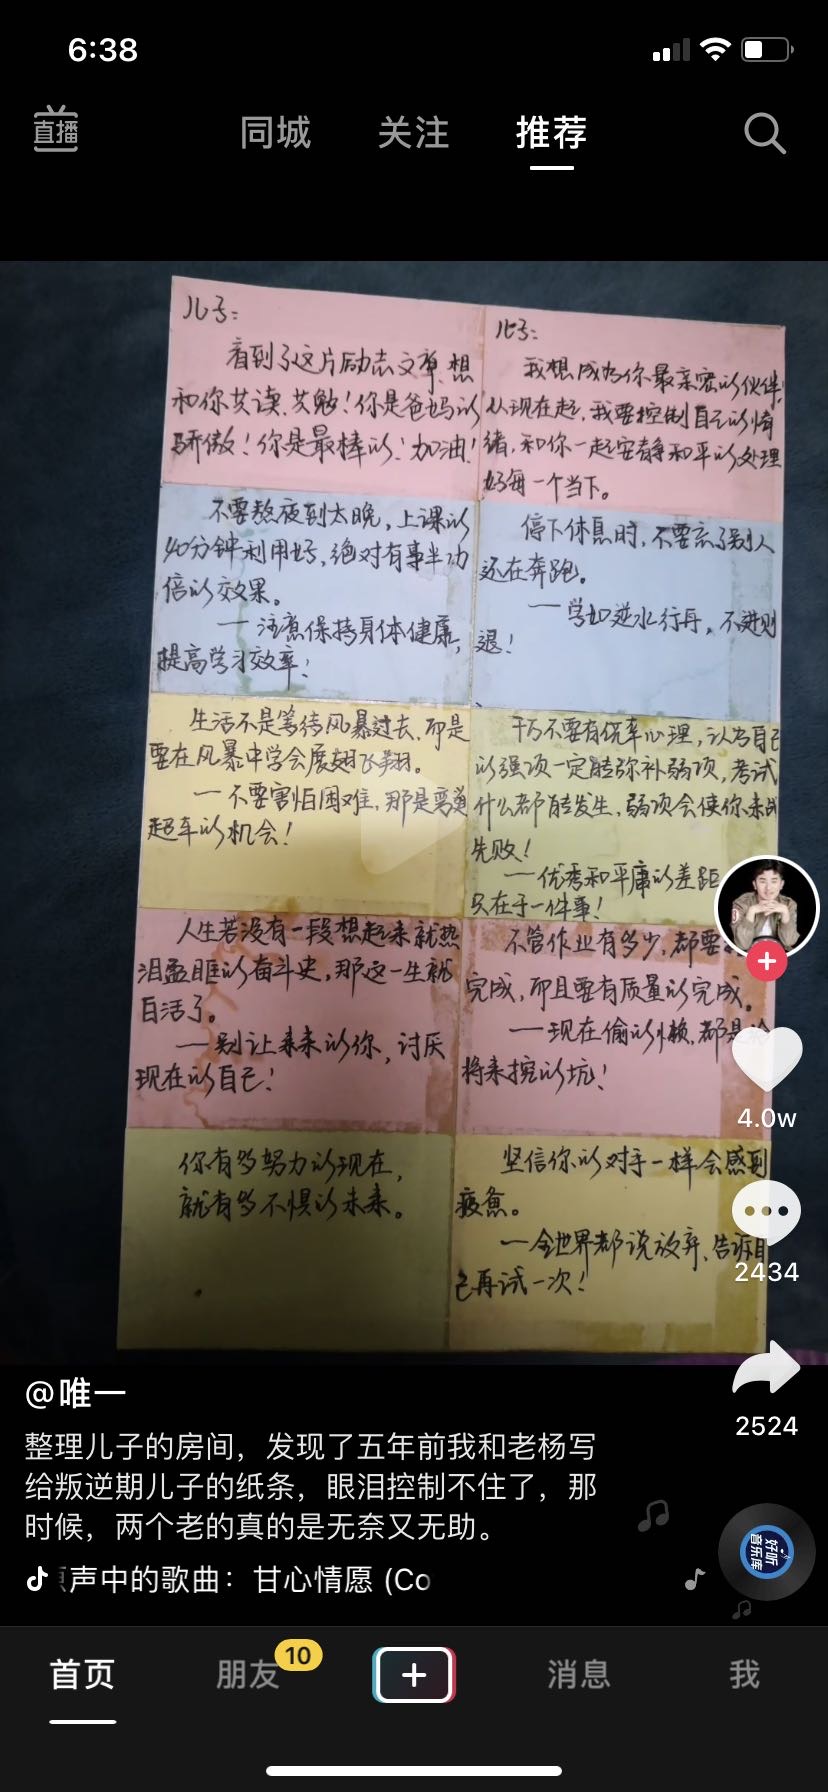 6:38
直播
同城
关注
推荐
儿子：
看到了这片励志文章，想
和你共读、共勉！你是爸妈的
骄傲！你是最棒的！加油！
儿子：
我想成为你最亲密的伙伴，
从现在起，我要控制自己的情
绪，和你一起安静和平的处理
好每一个当下。
不要熬夜到太晚，上课的
40分钟利用好，绝对有事半功
倍的效果。
—注意保持身体健康，
提高学习效率！
停下休息时，不要忘了别人
还在奔跑。
—学如逆水行舟，不进则
退！
生活不是等待风暴过去，而是
要在风暴中学会展翅飞翔。
—不要害怕困难，那是弯道
超车的机会！
千万不要有侥幸心理，认为自己
的强项一定能弥补弱项，考试
什么都能发生，弱项会使你未战
先败！
—优秀和平庸的差距
只在于一件事！
人生若没有一段想起来就热
泪盈眶的奋斗史，那这一生就
白活了。
—别让未来的你，讨厌
现在的自己！
不管作业有多少，都要
完成，而且要有质量的完成。
—现在偷的懒，都是给
将来挖的坑！
你有多努力的现在，
就有多不惧的未来。
坚信你的对手一样会感到
疲惫。
—全世界都说放弃，告诉自
己再试一次！
4.0w
2434
2524
@唯一
整理儿子的房间，发现了五年前我和老杨写
给叛逆期儿子的纸条，眼泪控制不住了，那
时候，两个老的真的是无奈又无助。
原声中的歌曲：甘心情愿 (Co
好听
音乐库
首页
朋友
10
消息
我